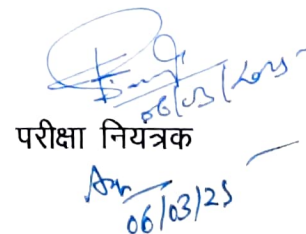 06/03/2025
परीक्षा नियत्रक
06/03/25